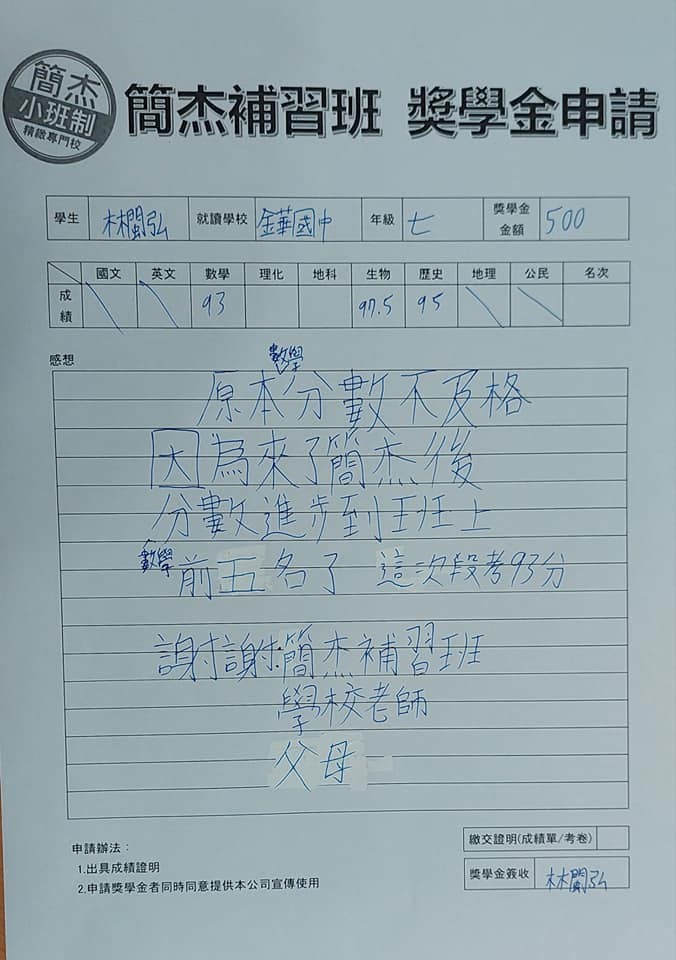 簡杰
小班制
精緻專門校
簡杰補習班 獎學金申請
學生 林閩弘 就讀學校 金華國中 年級 七 獎學金金額 500
國文 英文 數學 理化 地科 生物 歷史 地理 公民 名次
成績 93 97.5 95
感想
數學
原本分數不及格
因為來了簡杰後
分數進步到班上
數學前五名了 這次段考93分
謝謝簡杰補習班
學校老師
父母
申請辦法：
1.出具成績證明
2.申請獎學金者同時同意提供本公司宣傳使用
繳交證明(成績單/考卷)
獎學金簽收 林閩弘